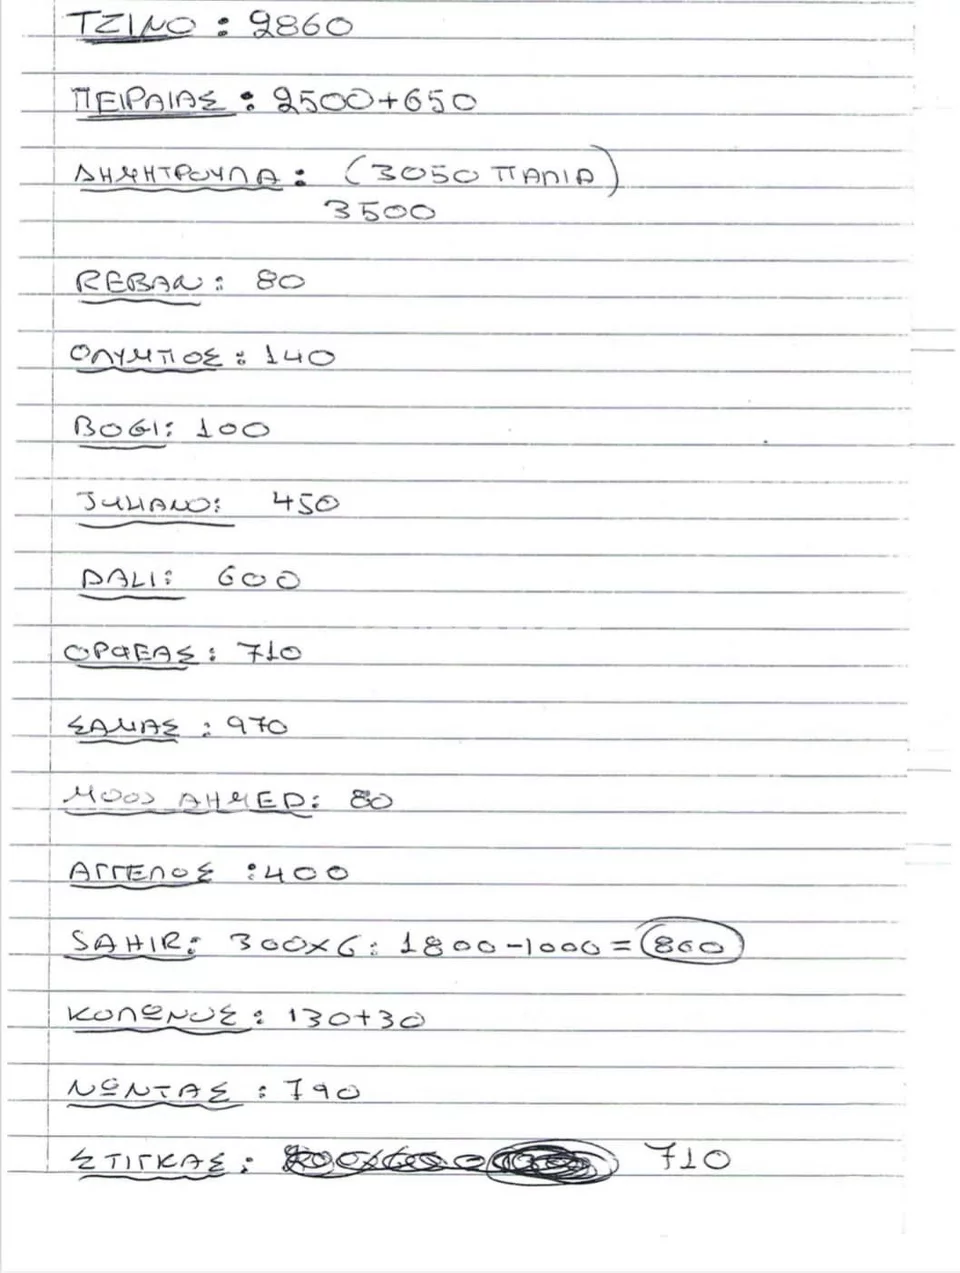 ΤΖΙΝΟ : 2860
ΠΕΙΡΑΙΑΣ : 2500+650
ΔΗΜΗΤΡΟΥΛΑ : (3050 ΠΑΛΙΑ)
3500
REBAN : 80
ΟΛΥΜΠΟΣ : 140
BOGI : 100
JULIANO : 450
DALI : 600
ΟΡΦΕΑΣ : 710
ΣΑΜΑΣ : 970
AHMED : 80
ΑΓΓΕΛΟΣ : 400
SAHIR : 300×6 : 1800-1000 = 860
ΚΟΛΩΝΟΣ : 130+30
ΝΩΝΤΑΣ : 790
ΣΤΙΓΚΑΣ : 710